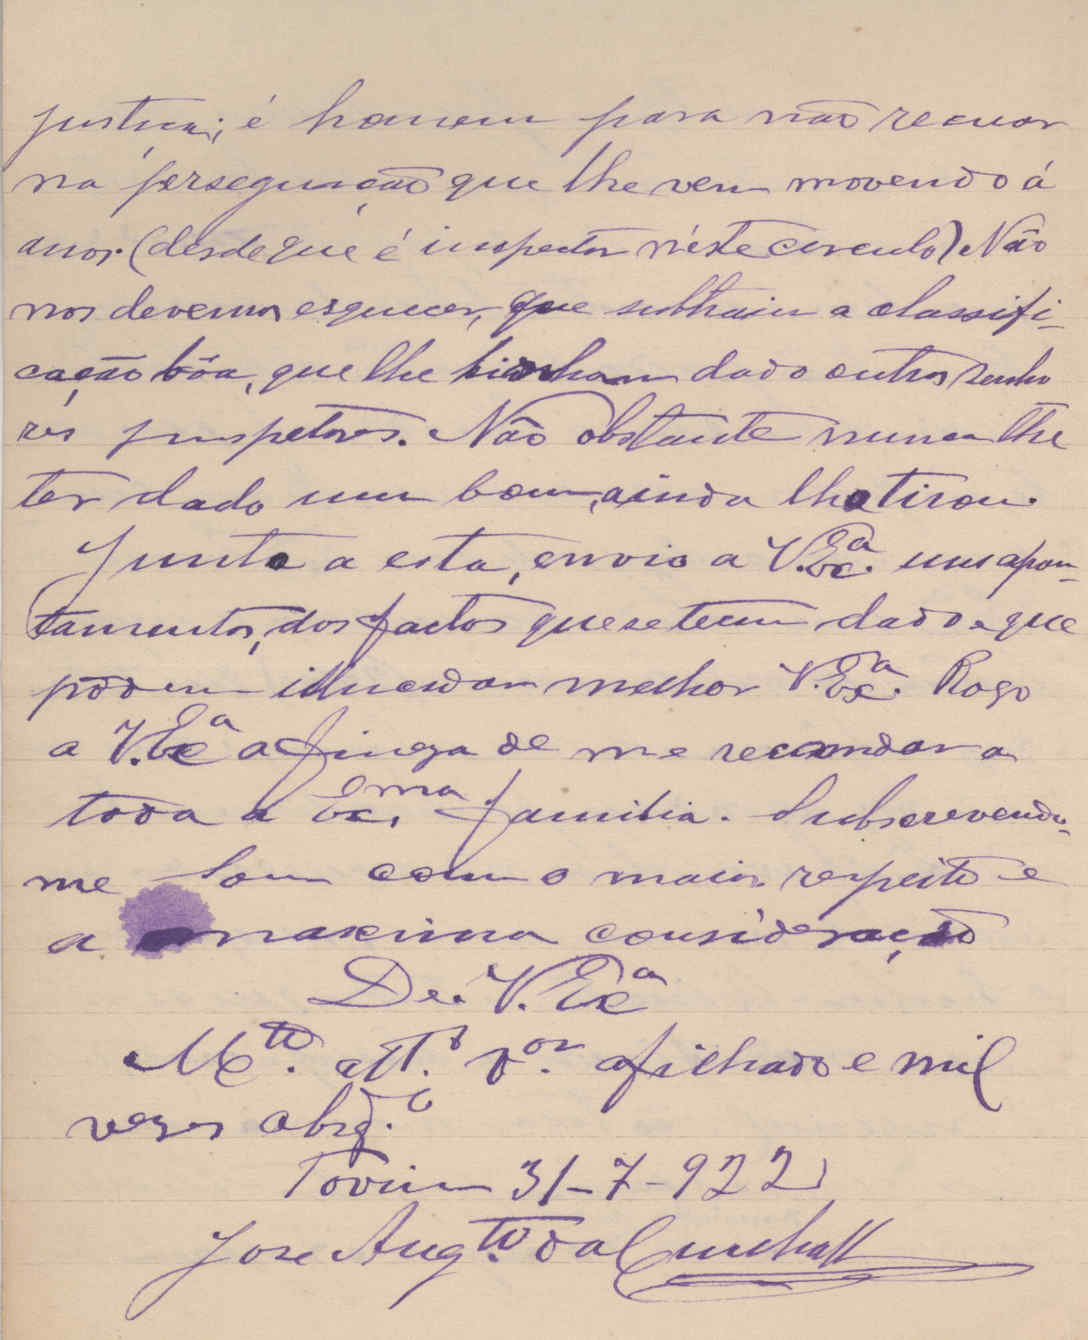 justiça; é homem para não recuar
na perseguição que lhe vem movendo á
anos. (desde que é inspector n'este circulo) Não
nos devemos esquecer, que subtraiu a classifi-
cação bôa, que lhe tinham dado outros senho
res inspetores. Não obstante nunca lhe
ter dado um bom, ainda lho tirou.
Junto a esta, envio a V. Exª. uns apon-
tamentos, dos factos que se teem dado e que
pódem elucidar melhor V. Exª. Rogo
a V. Exª a fineza de me recomendar a
toda a Exma. familia. Subscrevendo-
me Sou com o maior respeito e
a maxima consideração
De V. Exª
Mto. attº. vor. afilhado e mil
vezes obrgº.
Tovim 31-7-922
José Augto. da Cunha